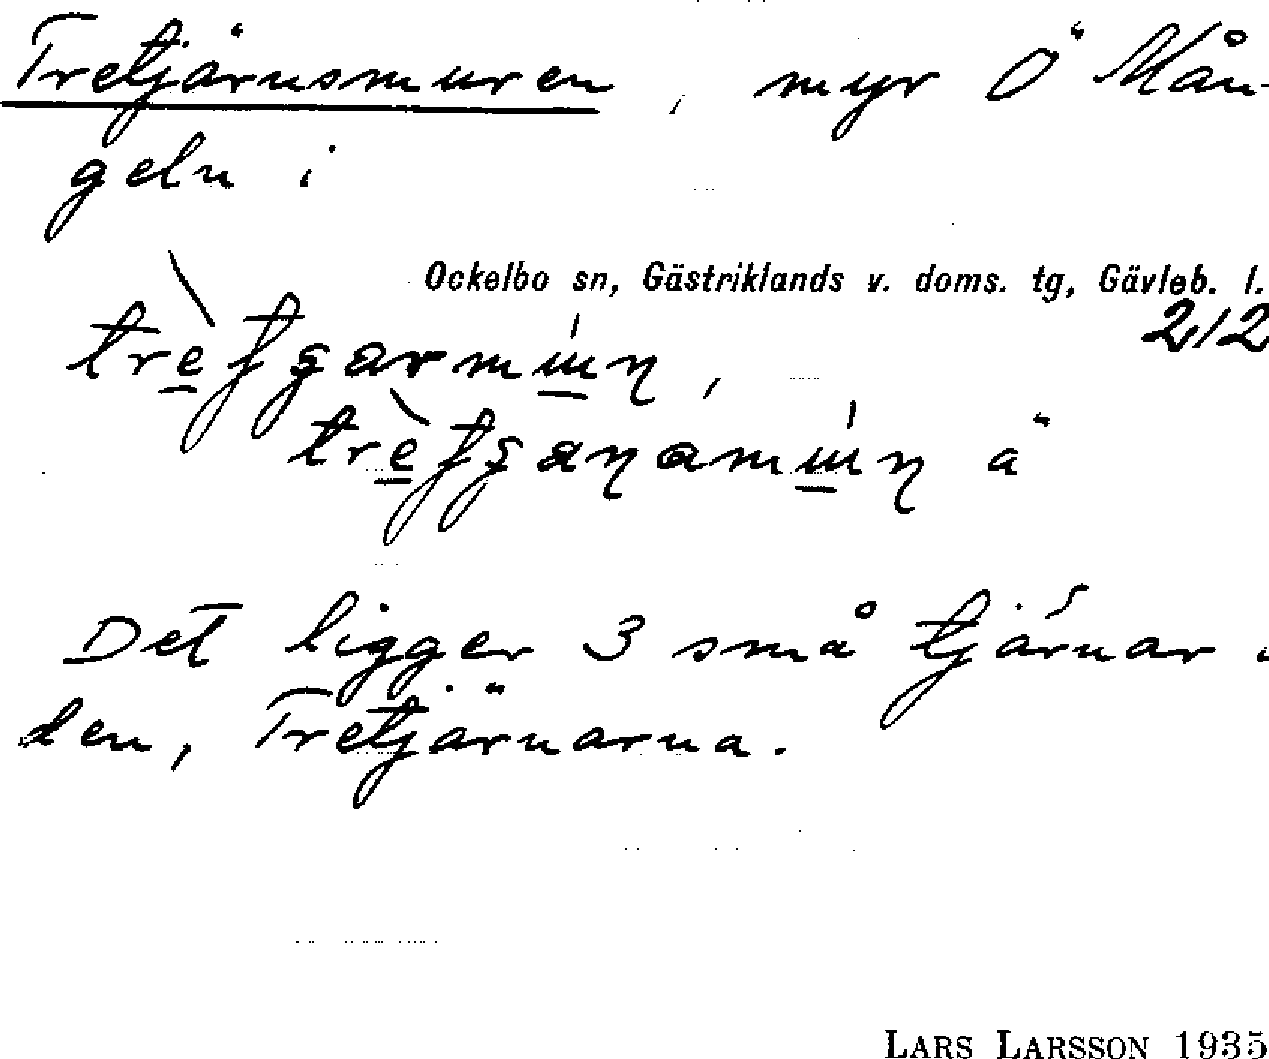 Tretjärnsmuren, myr Ö Mån-
geln i
Ockelbo sn, Gästriklands v. doms. tg, Gävleb. l.
212
ä
Det ligger 3 små tjärnar i
den, Tretjärnarna.
LARS LARSSON 1935